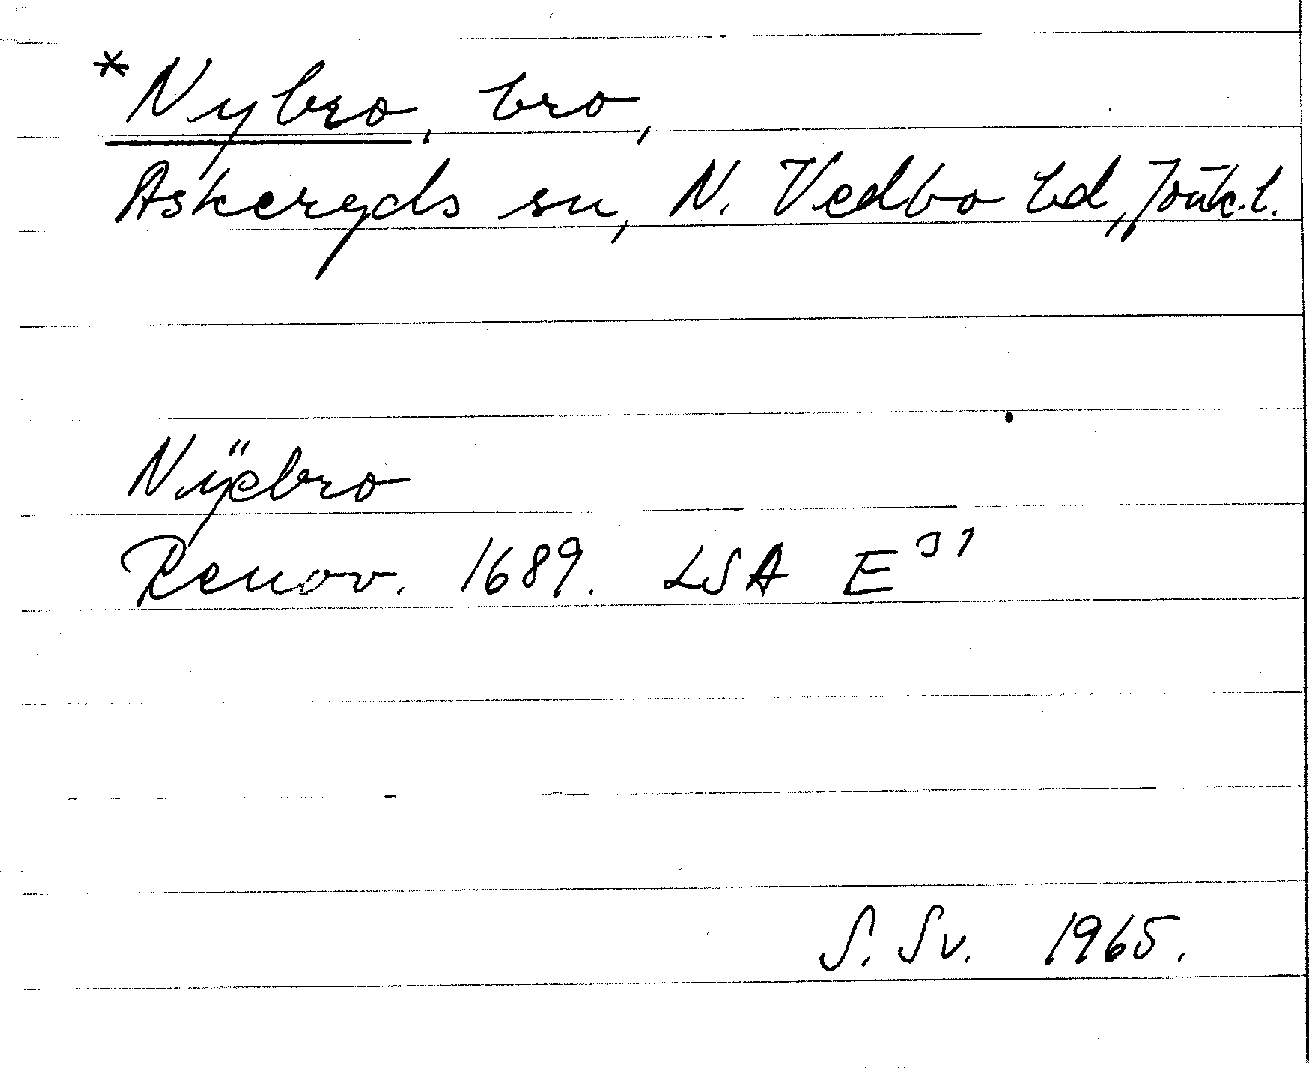 *Nybro, bro,
Askeryds sn, N. Vedbo hd, Jönk.l.
Nÿebro
Renov. 1689. LSA E 31
S. Sv. 1965.